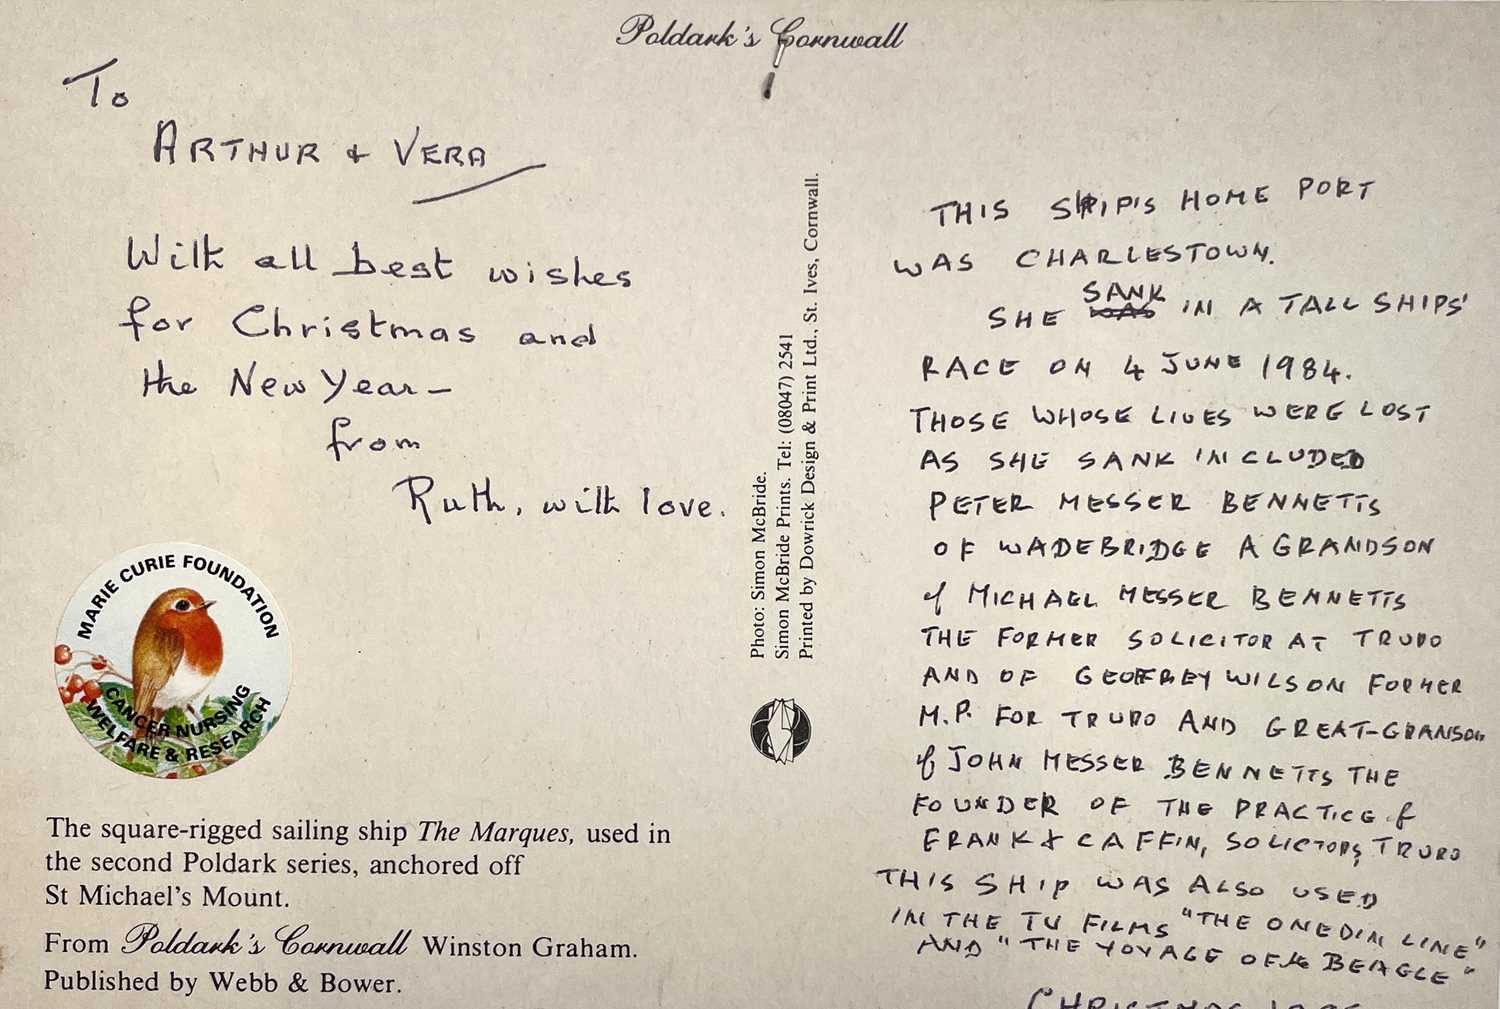 Poldark's Cornwall
To
ARTHUR & VERA
With all best wishes
for Christmas and
the New Year –
from
Ruth, with love.
MARIE CURIE FOUNDATION
CANCER NURSING
WELFARE & RESEARCH
The square-rigged sailing ship The Marques, used in
the second Poldark series, anchored off
St Michael's Mount.
From Poldark's Cornwall Winston Graham.
Published by Webb & Bower.
Photo: Simon McBride.
Simon McBride Prints. Tel: (08047) 2541
Printed by Dowrick Design & Print Ltd., St. Ives, Cornwall.
THIS SHIP'S HOME PORT
WAS CHARLESTOWN.
SHE SANK IN A TALL SHIPS'
RACE ON 4 JUNE 1984.
THOSE WHOSE LIVES WERE LOST
AS SHE SANK INCLUDED
PETER MESSER BENNETTS
OF WADEBRIDGE A GRANDSON
of MICHAEL MESSER BENNETTS
THE FORMER SOLICITOR AT TRURO
AND OF GEOFFREY WILSON FORMER
M.P. FOR TRURO AND GREAT-GRANSON
of JOHN MESSER BENNETTS THE
FOUNDER OF THE PRACTICE of
FRANK & CAFFIN, SOLICTORS, TRURO
THIS SHIP WAS ALSO USED
IN THE TV FILMS "THE ONEDIN LINE"
AND "THE VOYAGE OF the BEAGLE"
CHRISTMAS